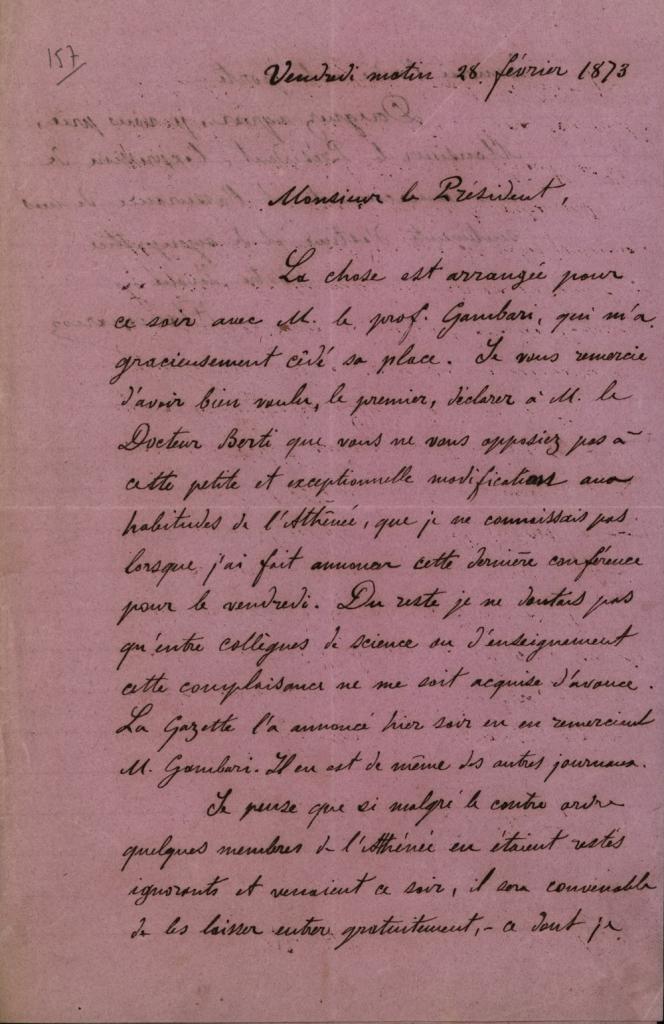 157
Vendredi matin 28 février 1873
Monsieur le Président,
La chose est arrangée pour
ce soir avec M. le prof. Gambari, qui m'a
gracieusement cédé sa place. Je vous remercie
d'avoir bien voulu, le premier, déclarer à M. le
Docteur Berti que vous ne vous opposiez pas à
cette petite et exceptionnelle modification aux
habitudes de l'Athénée, que je ne connaissais pas
lorsque j'ai fait annoncer cette dernière conférence
pour le vendredi. Du reste je ne doutais pas
qu'entre collègues de science ou d'enseignement
cette complaisance ne me soit acquise d'avance.
La Gazette l'a annoncé hier soir en en remerciant
M. Gambari. Il en est de même des autres journaux.
Je pense que si malgré le contre ordre
quelques membres de l'Athénée en étaient restés
ignorants et venaient ce soir, il sera convenable
de les laisser entrer gratuitement, - ce dont je